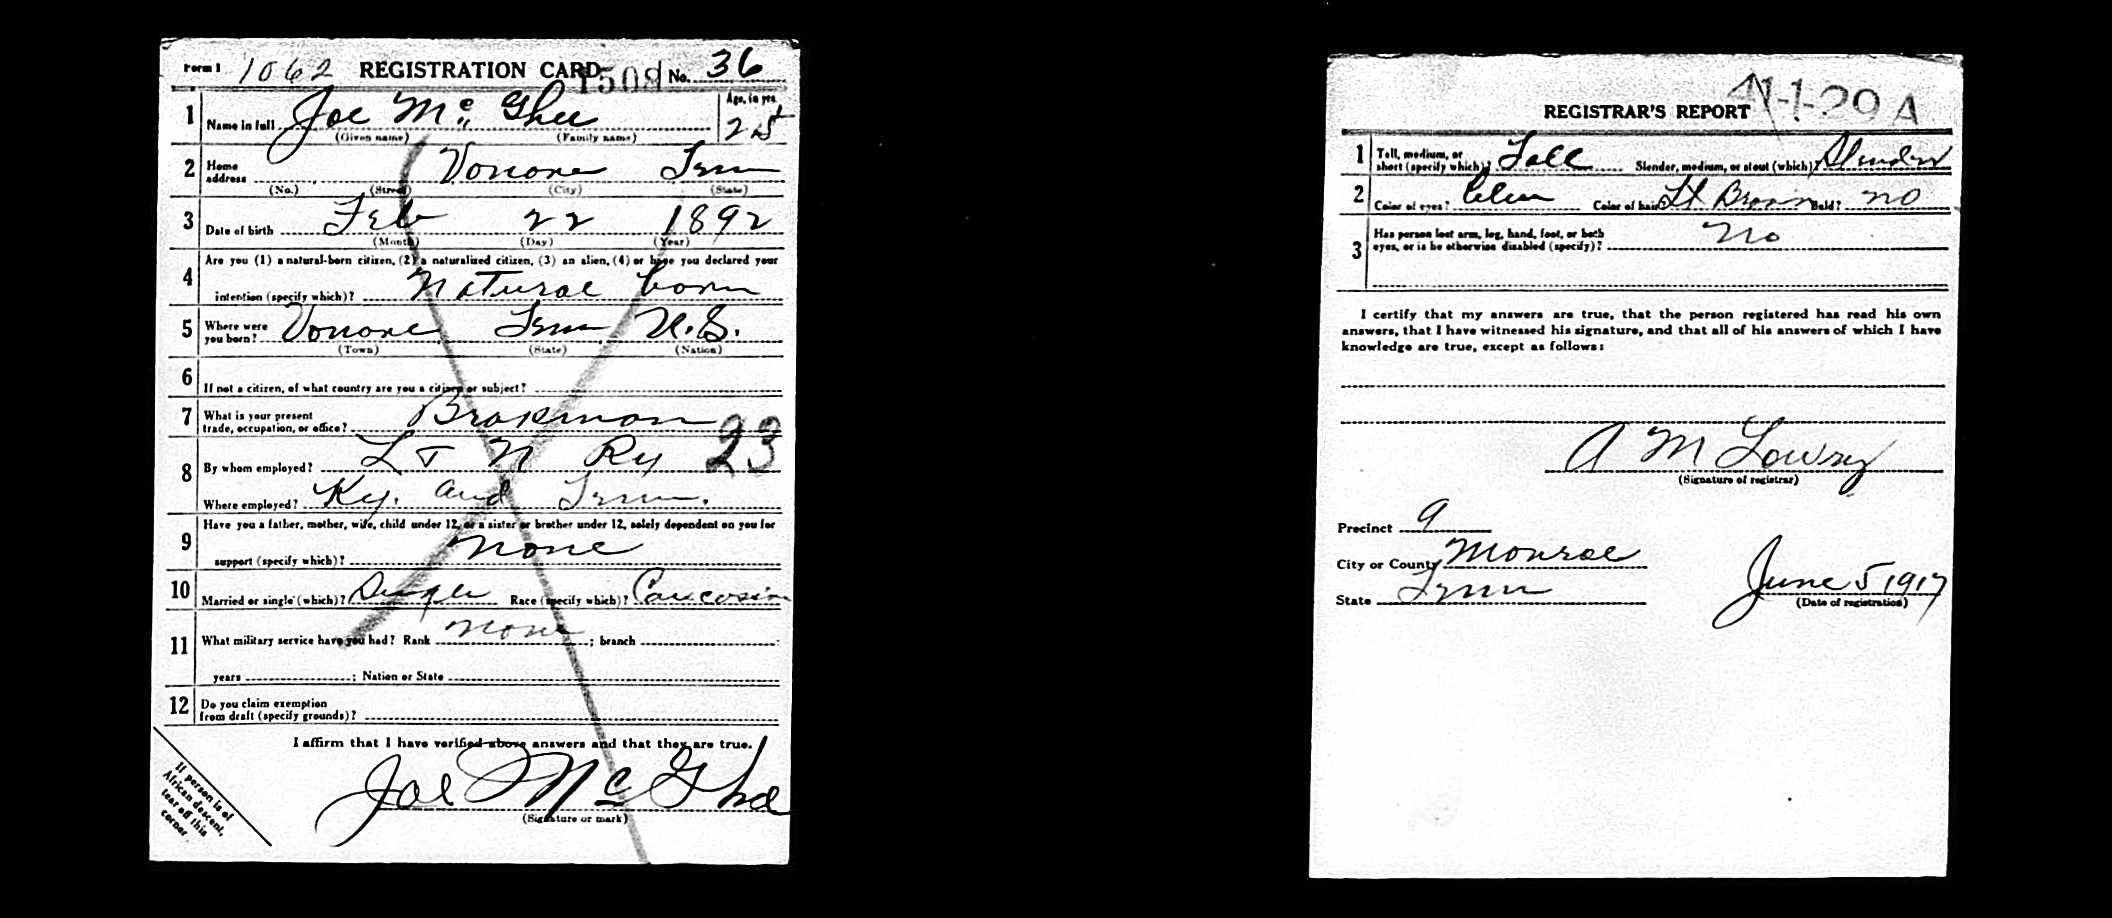 Form 1 1062 REGISTRATION CARD 1508 No. 36
1 Name in full Joe Mc Ghee Age, in yrs. 25
(Given name) (Family name)
2 Home address Vonore Tenn
(No.) (Street) (City) (State)
3 Date of birth Feb 22 1892
(Month) (Day) (Year)
4 Are you (1) a natural-born citizen, (2) a naturalized citizen, (3) an alien, (4) or have you declared your
intention (specify which)? Natural born
5 Where were you born? Vonore Tenn U.S.
(Town) (State) (Nation)
6 If not a citizen, of what country are you a citizen or subject?
7 What is your present trade, occupation, or office? Brakman
23
8 By whom employed? L & N Ry
Where employed? Ky. and Tenn.
9 Have you a father, mother, wife, child under 12, or a sister or brother under 12, solely dependent on you for
support (specify which)? None
10 Married or single (which)? Single Race (specify which)? Caucasian
11 What military service have you had? Rank None ; branch
years ; Nation or State
12 Do you claim exemption
from draft (specify grounds)?
I affirm that I have verified above answers and that they are true.
Joe McGhee
(Signature or mark)
If person is of
African descent,
tear off this
corner
41-1-29 A
REGISTRAR'S REPORT
1 Tall, medium, or short (specify which)? Tall Slender, medium, or stout (which)? Slender
2 Color of eyes? Blue Color of hair? Lt Brown Bald? No
3 Has person lost arm, leg, hand, foot, or both
eyes, or is he otherwise disabled (specify)? No
I certify that my answers are true, that the person registered has read his own
answers, that I have witnessed his signature, and that all of his answers of which I have
knowledge are true, except as follows:
A M Lowry
(Signature of registrar)
Precinct 9
City or County Monroe
State Tenn
June 5 1917
(Date of registration)